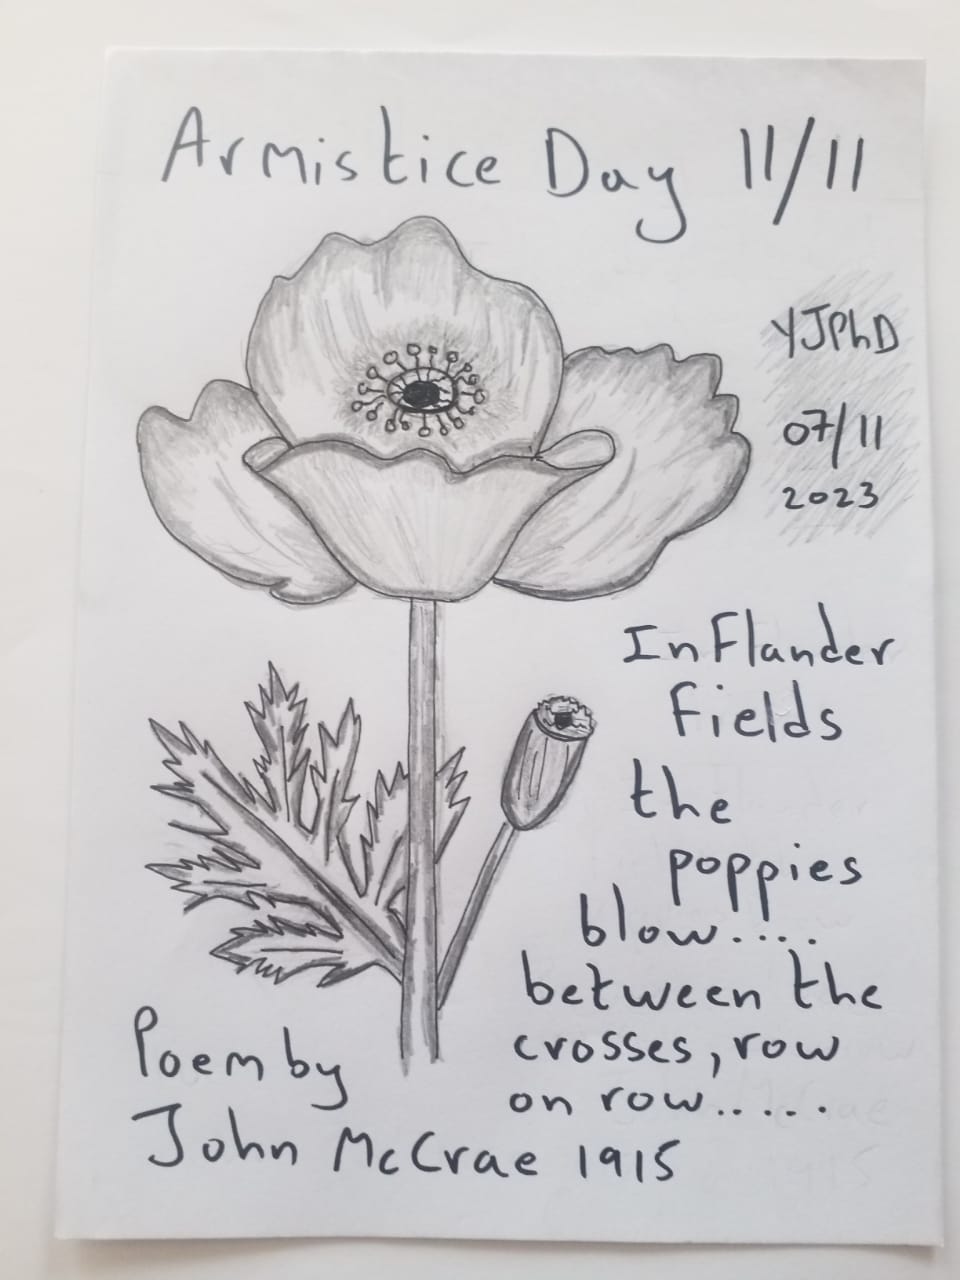 Armistice Day 11/11
YJPhD
07/11
2023
In Flander
Fields
the
poppies
blow....
between the
crosses, row
on row.....
Poem by
John McCrae 1915